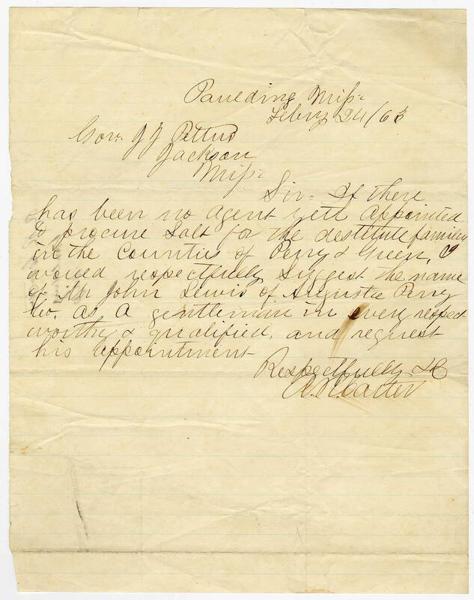 Paulding Miss
Febry 24/63
Gov. J J Pettus
Jackson
Miss
Sir. If there
has been no agent yett appointed
to procure Salt for the destitute families
in the Counties of Perry & Green, I
would respectfully suggest the name
of Mr John Lewis of Augusta Perry
Co. as a gentleman in every respect
worthy & qualified, and request
his appointment
Respectfully &C
Carter